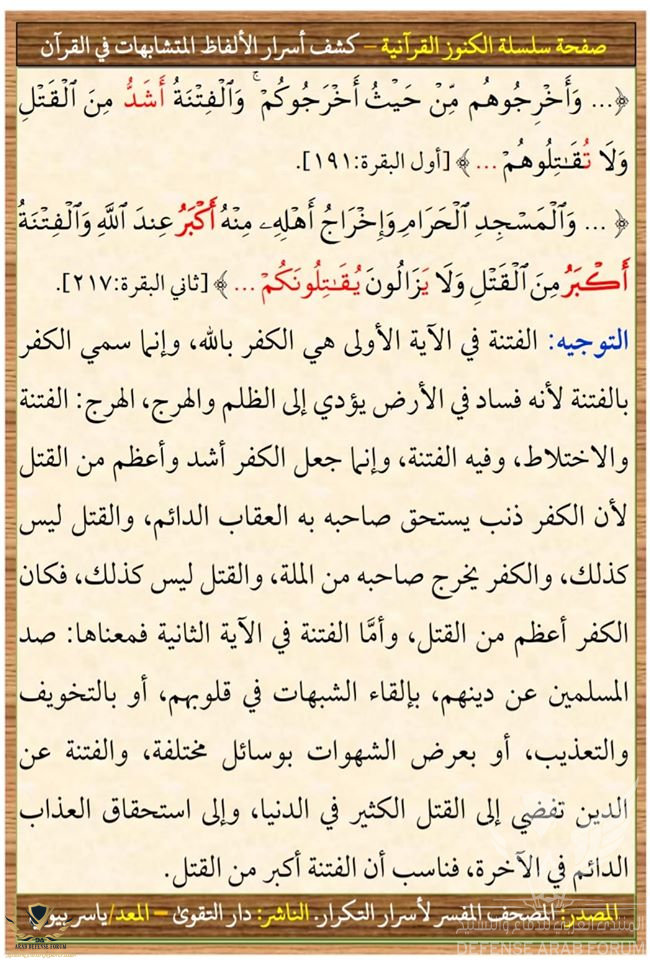 صفحة سلسلة الكنوز القرآنية – كشف أسرار الألفاظ المتشابهات في القرآن
﴿... وَأَخْرِجُوهُم مِّنْ حَيْثُ أَخْرَجُوكُمْ ۚ وَٱلْفِتْنَةُ أَشَدُّ مِنَ ٱلْقَتْلِ
وَلَا تُقَٰتِلُوهُمْ ... ﴾ [أول البقرة:١٩١].
﴿ ... وَٱلْمَسْجِدِ ٱلْحَرَامِ وَإِخْرَاجُ أَهْلِهِۦ مِنْهُ أَكْبَرُ عِندَ ٱللَّهِ وَٱلْفِتْنَةُ
أَكْبَرُ مِنَ ٱلْقَتْلِ وَلَا يَزَالُونَ يُقَٰتِلُونَكُمْ ... ﴾ [ثاني البقرة:٢١٧].
التوجيه: الفتنة في الآية الأولى هي الكفر بالله، وإنما سمي الكفر
بالفتنة لأنه فساد في الأرض يؤدي إلى الظلم والهرج، الهرج: الفتنة
والاختلاط، وفيه الفتنة، وإنما جعل الكفر أشد وأعظم من القتل
لأن الكفر ذنب يستحق صاحبه به العقاب الدائم، والقتل ليس
كذلك، والكفر يخرج صاحبه من الملة، والقتل ليس كذلك، فكان
الكفر أعظم من القتل، وأمَّا الفتنة في الآية الثانية فمعناها: صد
المسلمين عن دينهم، بإلقاء الشبهات في قلوبهم، أو بالتخويف
والتعذيب، أو بعرض الشهوات بوسائل مختلفة، والفتنة عن
الدين تفضي إلى القتل الكثير في الدنيا، وإلى استحقاق العذاب
الدائم في الآخرة، فناسب أن الفتنة أكبر من القتل.
المصدر: المصحف المفسر لأسرار التكرار. الناشر: دار التقوىٰ – المعد/ياسر بيو
المنتدى العربي للدفاع والتسليح
DEFENSE ARAB FORUM
ARAB DEFENSE FORUM